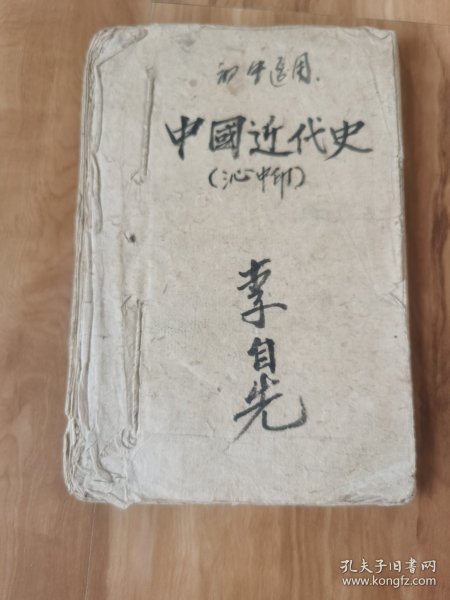 初中适用.
中國近代史
(沁中印)
李自先
孔夫子旧书网
www.kongfz.com